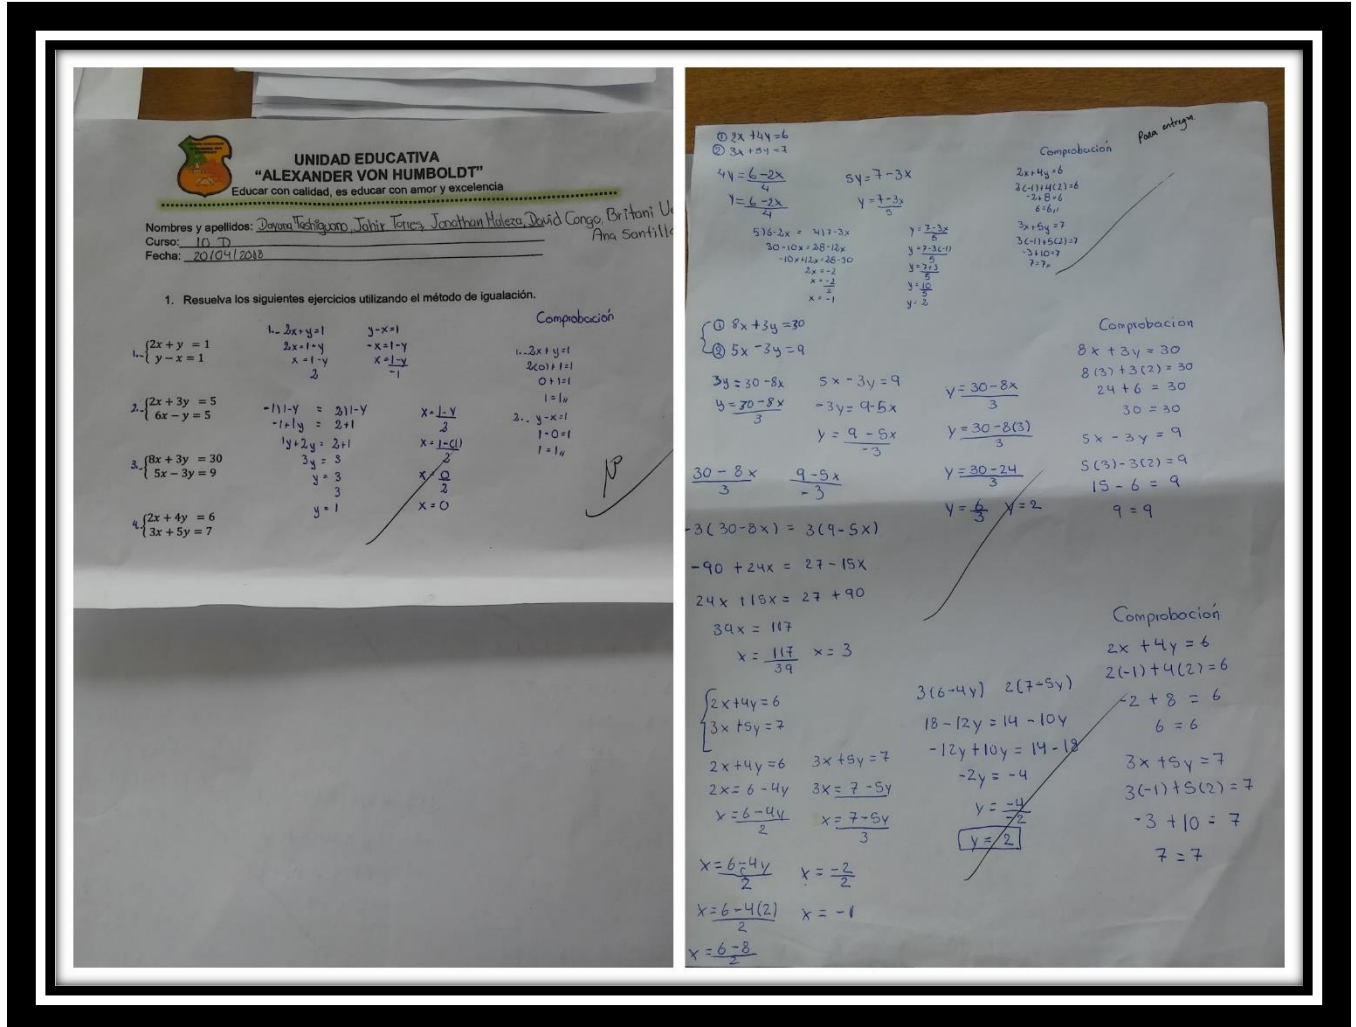 UNIDAD EDUCATIVA
“ALEXANDER VON HUMBOLDT”
Educar con calidad, es educar con amor y excelencia
Nombres y apellidos: Dayana Jahir Torres, Jonathan David Congo, Britani
Ana
Curso: 10 D
Fecha: 20/04/2018
1. Resuelva los siguientes ejercicios utilizando el método de igualación.
1.- {2x + y = 1
y − x = 1
2.- {2x + 3y = 5
6x − y = 5
3.- {8x + 3y = 30
5x − 3y = 9
4.- {2x + 4y = 6
3x + 5y = 7
1.- 2x+y=1
2x=1-y
x=1-y
2
y-x=1
-x=1-y
x=1-y
-1
-1)1-y = 2)1-y
-1+1y = 2+1
1y+2y = 2+1
3y = 3
y = 3
3
y = 1
x=1-y
2
x=1-(1)
2
x=0
2
x=0
Comprobación
1.-2x+y=1
2(0)+1=1
0+1=1
1=1,,
2.- y-x=1
1-0=1
1=1,,
① 2x+4y=6
② 3x+5y=7
Para entregar
4y=6-2x
4
y=6-2x
4
5y=7-3x
y=7-3x
5
5)6-2x = 4)7-3x
30-10x=28-12x
-10x+12x=28-30
2x=-2
x=-2
2
x=-1
y=7-3x
5
y=7-3(-1)
5
y=7+3
5
y=10
5
y=2
Comprobación
2x+4y=6
2(-1)+4(2)=6
-2+8=6
6=6,,
3x+5y=7
3(-1)+5(2)=7
-3+10=7
7=7,,
{① 8x+3y=30
② 5x-3y=9
3y=30-8x
y=30-8x
3
5x-3y=9
-3y=9-5x
y=9-5x
-3
30-8x
3
9-5x
-3
-3(30-8x) = 3(9-5x)
-90+24x = 27-15x
24x+15x = 27+90
39x = 117
x=117
39
x=3
y=30-8x
3
y=30-8(3)
3
y=30-24
3
y=6
3
y=2
Comprobacion
8x+3y=30
8(3)+3(2)=30
24+6=30
30=30
5x-3y=9
5(3)-3(2)=9
15-6=9
9=9
{2x+4y=6
3x+5y=7
2x+4y=6
2x=6-4y
x=6-4y
2
3x+5y=7
3x=7-5y
x=7-5y
3
x=6-4y
2
x=6-4(2)
2
x=6-8
2
x=-2
2
x=-1
3(6-4y) 2(7-5y)
18-12y=14-10y
-12y+10y=14-18
-2y=-4
y=-4
-2
y=2
Comprobación
2x+4y=6
2(-1)+4(2)=6
-2+8=6
6=6
3x+5y=7
3(-1)+5(2)=7
-3+10=7
7=7